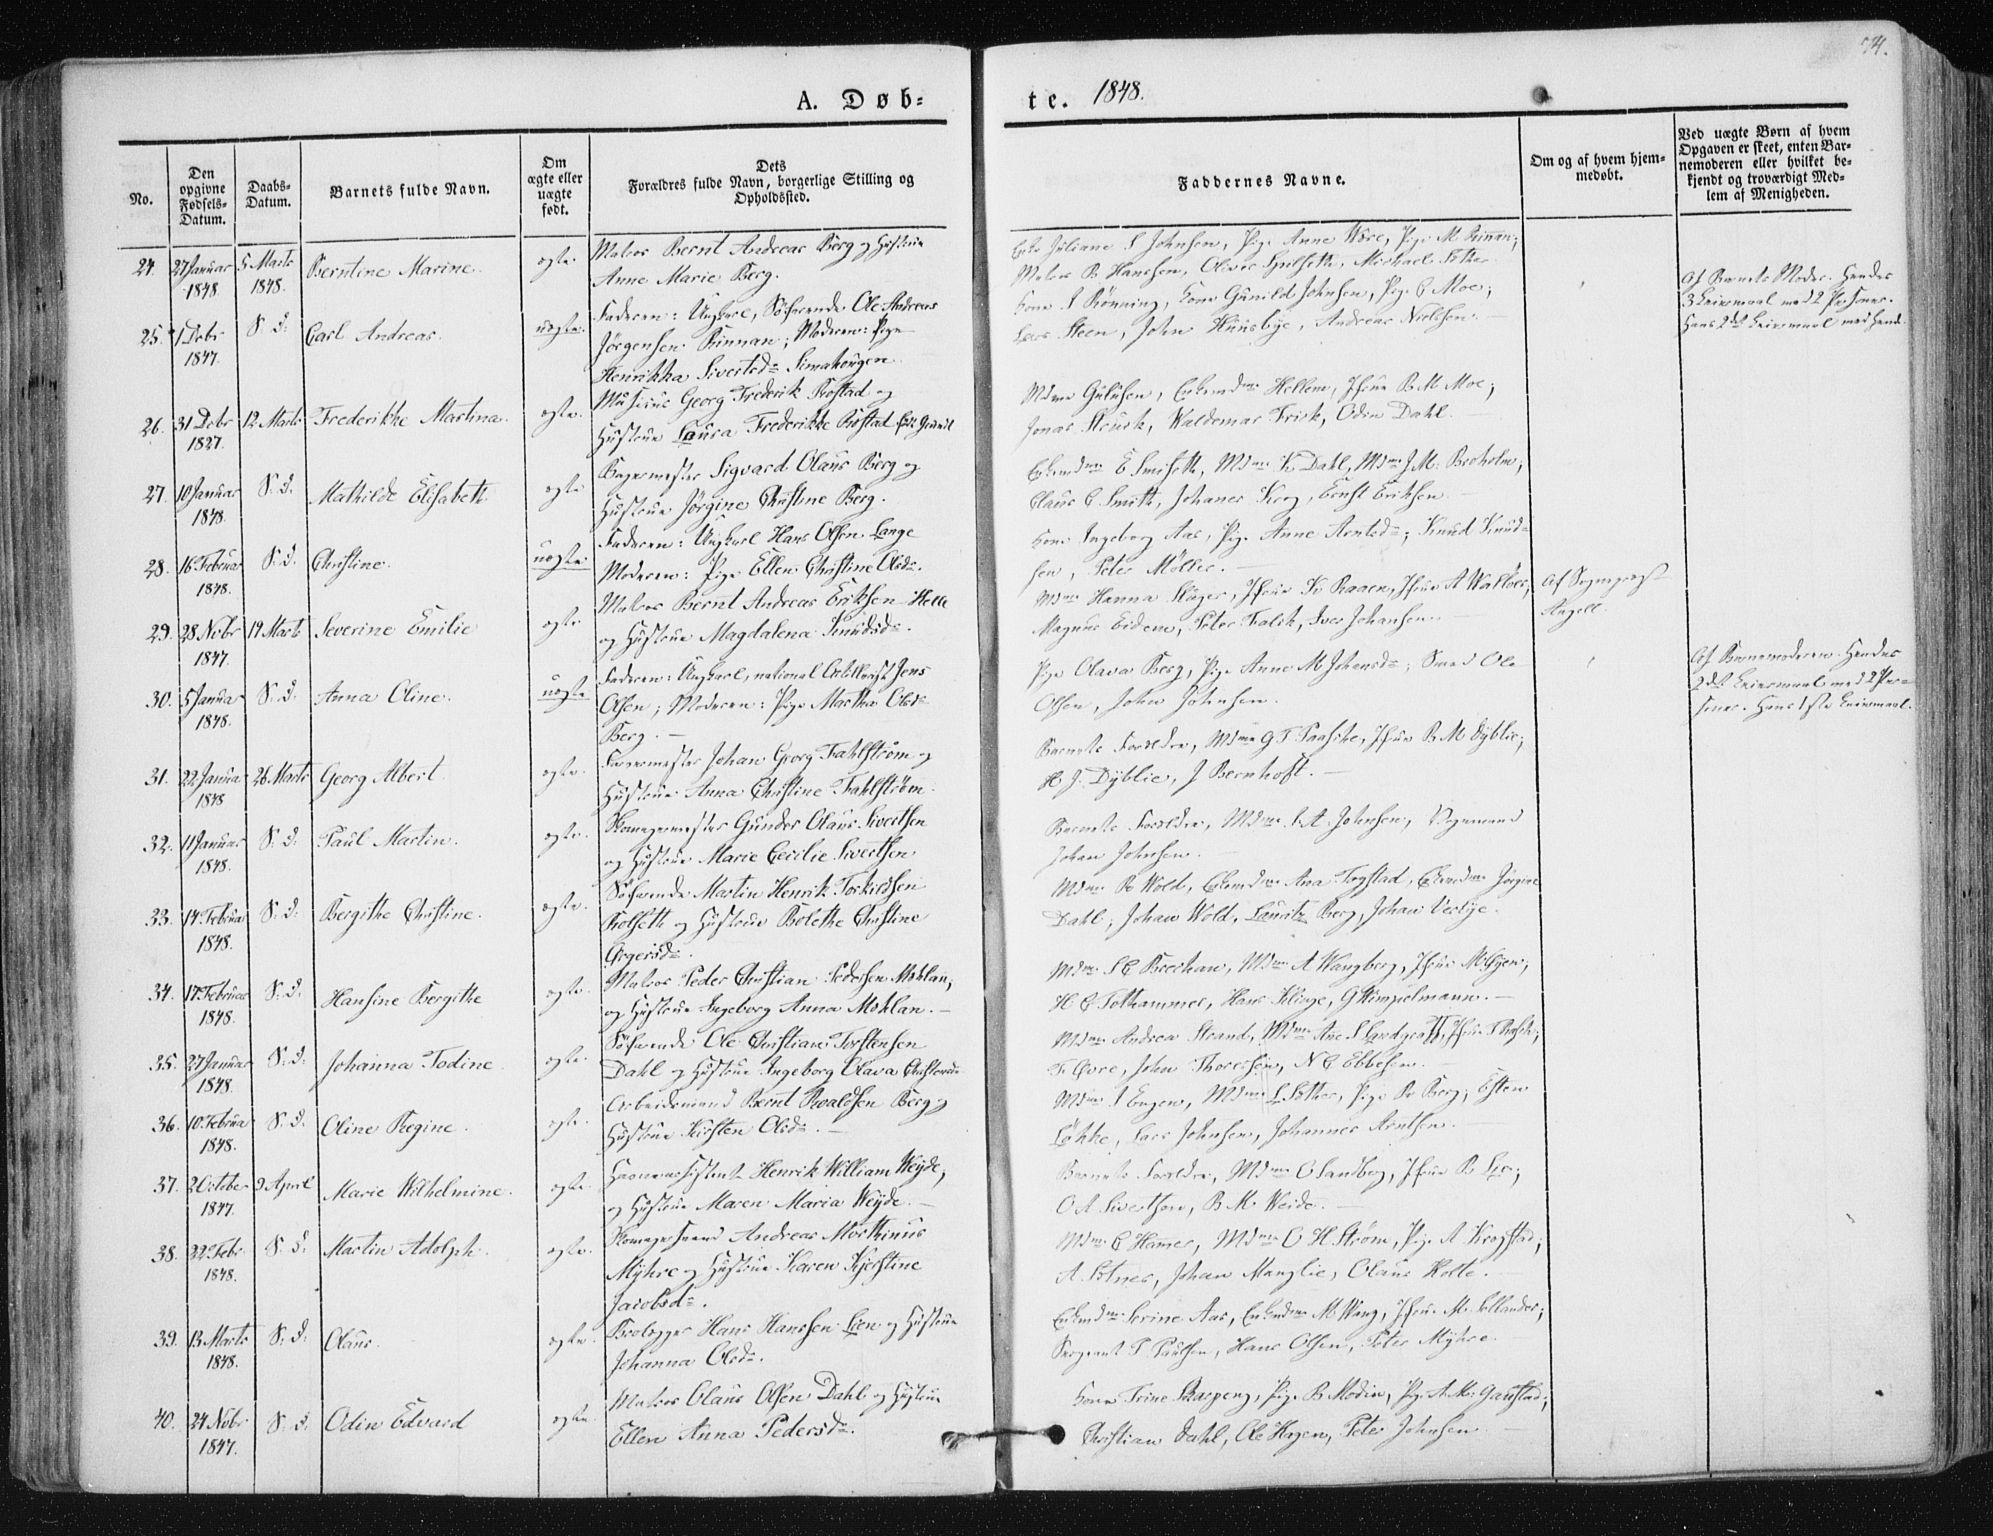 74.
A. Døb=
te. 1848.
No.
Den opgivne Fødsels=Datum.
Daabs=Datum.
Barnets fulde Navn.
Om ægte eller uægte født.
Dets Forældres fulde Navn, borgerlige Stilling og Opholdssted.
Faddernes Navne.
Om og af hvem hjem=medøbt.
Ved uægte Børn af hvem Opgaven er skeet, enten Bar=nemoderen eller hvilket be=kjendt og troværdigt Med=lem af Menigheden.
24. 27 Januar 1848. 5 Marts 1848. Berntine Marine. ægte.
Matros Bernt Andreas Berg og Hustrue
Anne Marie Berg.
Juliane S Johnsen, Pige Anne
Matros B Hanssen, Oliver
25. 1 Debr 1847. S. D. Carl Andreas. uægte.
Faderen: Ungkarl, Søfarende Ole Andreas
Jørgensen Rinnan; Moderen: Pige
Henrikka Sivertsd.
Rønning, Kone Gunild Johnsen, Pige C Moe;
Lars Steen, John Huusbye, Andreas Nielsen.
Af Barnets Moder. Hendes
3 Leiermaal med 2 Personer.
Hans 2det Leiermaal med hende.
26. 31 Debr 1827. 12 Marts Frederikke Martina. ægte.
Musicus Georg Frederik Rostad og
Hustrue Laura Frederikke Rostad
Hellem, Jfrue B. M. Moe;
Jonas Waldemar Frisk, Odin Dahl.
27. 10 Januar 1848. S. D. Mathilde Elisabeth ægte
Bagermester Sigvard Olaus Berg og
Hustrue Jørgine Christine Berg.
E Smiseth, Mdme K Dahl, Mdme J. M. Broholm;
Claus C Smith, Johanes Krog, Ernst Eriksen.
28. 16 Februar 1848. S. D. Christine. uægte.
Faderen: Ungkarl Hans Olsen Lange
Moderen: Pige Ellen Christine Olsd.
Kone Ingeborg Aas, Pige Anne Arntsd; Knud Knud=
sen, Peter Møller.
29. 28 Nvbr 1847. 19 Marts Severine Emilie ægte
Matros Bernt Andreas Eriksen Helle
og Hustrue Magdalena Knudsd.
Mdme Hanna Slåger, Jfrue K Raaen, Jfrue A
Magnus Eidem, Peter Falck, Iver Johansen.
Af
Angell.
30. 5 Januar 1848. S. D. Anna Oline. uægte
Faderen: Ungkarl, national Artillerist Jens
Olsen; Moderen: Pige Martha Olsd
Berg.
Pige Olava Berg, Pige Anne M Johansd; Smed Ole
Olsen, John Johnsen.
Af Barnemoderen. Hendes
2det Leiermaal med 2 Per=
soner. Hans 1ste Leiermaal.
31. 22 Janua 1848 26 Marts Georg Albert. ægte.
Johan Georg Fahlstrøm og
Hustrue Anna Christine Fahlstrøm.
Barnets Forældre, Mdme G F Paasche, Jfrue B. M Dyblie;
H J. Dyblie, J Bernhoft.
32. 11 Januar 1848. S. D. Paul Martin. ægte.
Skomagermester Gunder Olaus Sivertsen
og Hustrue Marie Cecilie Sivertsen
Barnets Forældre, Mdme A. Johnsen,
Johan Johnsen.
33. 14 Februa 1848. S. D. Bergithe Christine. ægte.
Søfarende Martin Henrik Torkildsen
Rolseth og Hustrue Bolethe Christine
Mdme B Wold, Ana Trystad, Jørgine
Dahl; Johan Wold, Lauritz Berg, Johan
34. 17 Februar 1848. S. D. Hansine Bergithe ægte.
Matros Peder Christian Pedersen Moklan,
og Hustrue Ingeborg Anna Moklan.
Mdme A Wangberg, Jfrue
Hans Klinge, G Wimpelmann.
35. 27 Januar 1848. S. D. Johanna Todine ægte.
Søfarende Ole Christian Torstensen
Dahl og Hustrue Ingeborg Olava
Mdme Andrea Strand, Mdme
John Thoresen, N C Ebbesen.
36. 10 Februa 1848. S. D. Oline Regine. ægte.
Arbeidsmand Bernt Roaldsen Berg og
Hustrue Kirsten Olsd.
Mdme Pige Berg; Esten
Løkke, Lars Johnsen, Johannes Arntsen.
37. 2 October 1847. 9 April Marie Wilhelmine. ægte.
Henrik William Weyde,
og Hustrue Maren Maria Weyde.
Barnets Forældre, Mdme O Sandberg, Jfrue B. Lie;
O A Sivertsen, B. M. Weide.
38. 22 Febr 1848. S. D. Martin Adolph. ægte.
Skomagersvend Andreas Morthinus
Myhre og Hustrue Karen Kjerstine
Jacobsd.
Mdme C Hamer, Mdme O H Strøm, Pige A Krogstad;
Johan Manglie, Olaus Holte.
39. 13 Marts 1848. S. D. Olaus. ægte.
Brolægger Hans Hanssen Lien og Hustrue
Johanna Olsd.
Serine Aas, M Wang, Jfrue M. Sellander;
Sergeant P Paulsen, Hans Olsen, Peter Myhre.
40. 24 Nvbr 1847. S. D. Odin Edvard ægte.
Matros Olaus Olsen Dahl og Hustrue
Ellen Anna Pedersd.
Kone Trine Pige B. Modin, Pige A. M. Garstad;
Christian Dahl, Ole Hagen, Peter Johnsen